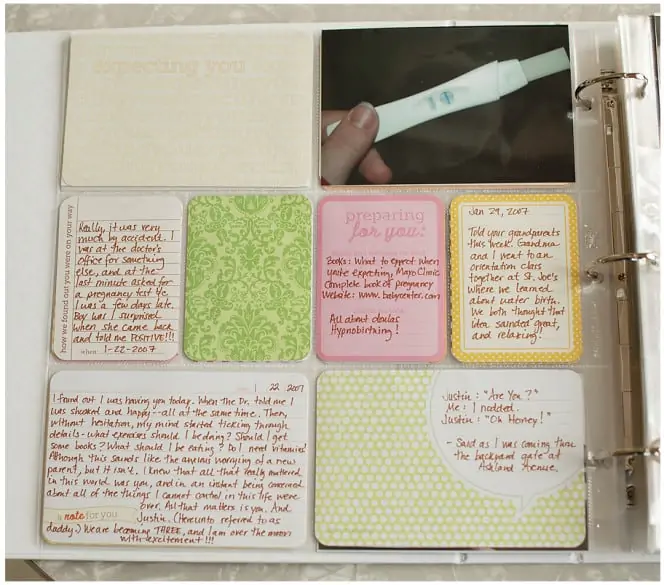 expecting you
how we found out you were on your way
Really, it was very
much by accident. I
was at the doctor's
office for something
else, and at the
last minute asked for
a pregnancy test. I'd
I was a few days late.
Boy was I surprised
when she came back
and told me POSITIVE!!!
when: 1-22-2007
preparing
for you:
Books: What to Expect when
you're expecting, Mayo Clinic
Complete book of pregnancy
Website: www.babycenter.com
All about doulas
Hypnobirthing!
Jan 29, 2007
Told your grandparents
this week. Grandma
and I went to an
orientation class
together at St. Joe's
where we learned
about water birth.
We both thought that
idea sounded great,
and relaxing!
1 22 2007
I found out I was having you today. When the Dr. told me I
was shocked and happy--all at the same time. Then,
without hesitation, my mind started ticking through
details--what exercises should I be doing? Should I get
some books? What should I be eating? Do I need vitamins?
Although this sounds like the anxious worrying of a new
parent, but it isn't. I knew that all that really mattered
in this world was you, and in an instant being concerned
about all of the things I cannot control in this life were
over. All that matters is you. And
a note for you
Justin. (Hereunto referred to as
daddy.) We are becoming THREE, and I am over the moon
with excitement!!!
Justin: "Are You?"
Me: I nodded.
Justin: "Oh Honey!"
- Said as I was coming thru
the backyard gate at
Ashland Avenue.